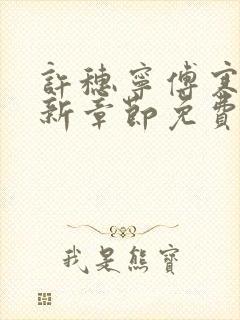 許穗寧傅寒
新章節免費
我是熊寶